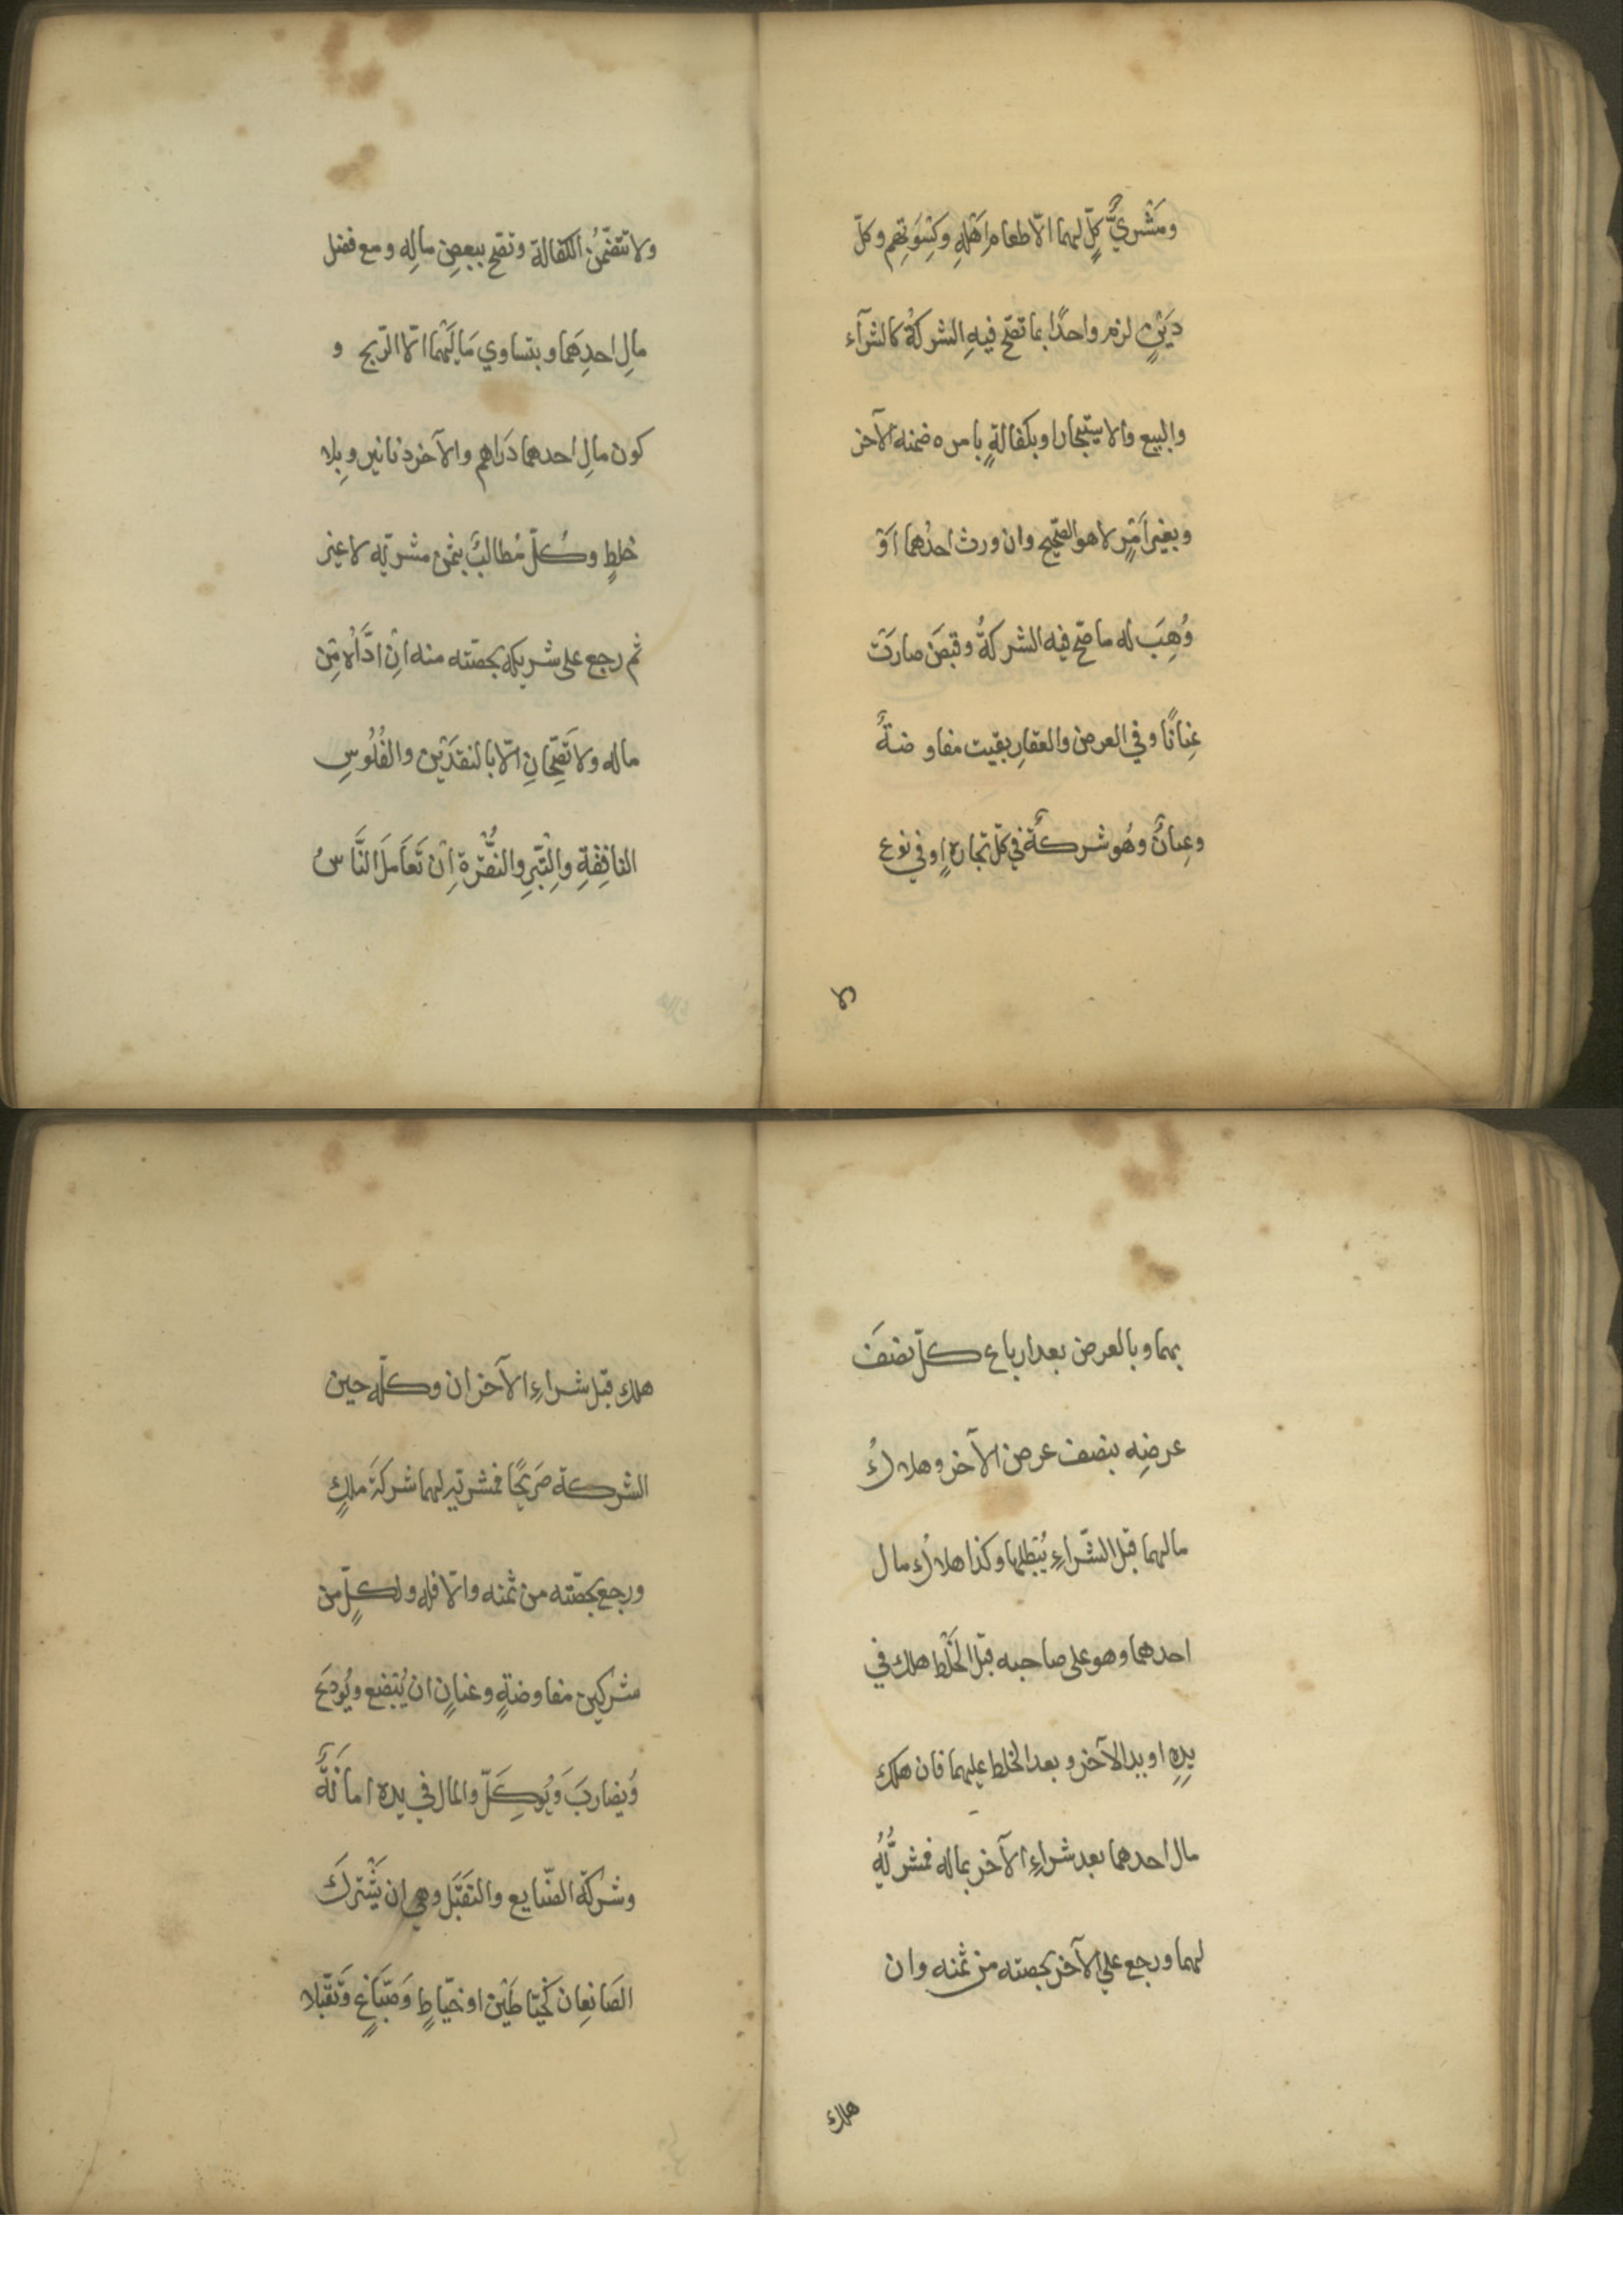 ومَشْريُّ كلٍّ لهما الّا طعام اَهْلِهِ وكِسْوَتِهِم وكلّ
دَيْنٍ لزم واحدًا بما تصحّ فيهِ الشركةُ كالشرآء
والبيع والاستيجار او بكفالةٍ بامره ضمنه الآخر
وبغير اَمْرٍ لا هو الصّحيح وان ورث احدُهما اَوْ
وُهِبَ له ما صحّ فيه الشركةُ وقبضَ صارَتْ
عِنانًا وفي العرض والعقارِ بقيت مفاوضةً
وعِنانٌ وهُو شركةٌ في كلّ تجارةٍ او في نوع
ولا
ولا تتضمّنُ الكفالة وتصحّ ببعضِ مالِه ومع فضل
مالِ احدِهَما وبتساوي مَالَيْهما الّا الرّبح و
كون مالِ احدهما دَراهم والآخر دنانير وبِلا
خلطٍ وكُلّ مُطالبٌ بثمن مشريّه لا غير
ثم رجع على شريكه بحصّته منه اِنْ ادَّاهُ مِنْ
ماله ولا تَصِحّانِ الّا بالنقدَيْن والفُلُوسِ
النافِقةِ والتِّبْرِ والنُّقْرة اِنْ تَعَامَلَ النَّاسُ
بهما وبالعرض بعد ارباع كلّ نصفَ
عرضِه بنصف عرض الآخر وهلاكُ
مالهما قبل الشّراءِ يُبْطلها وكذا هلاكُ مال
احدهما وهو على صاحبه قبل الخَلْط هلك في
يدِهِ او يد الآخر وبعد الخلط عليهما فان هلك
مال احدهما بعد شراءِ الآخر بماله فمشريُّهُ
لهما ورجع على الآخر بحصته من ثمنه وان
هلك
هلك قبل شراءِ الآخر ان وكله حين
الشركة صَريحًا فمشريّه لهما شركةَ ملكٍ
ورجع بحصّته من ثمنه والّا فله ولكلٍّ من
شريكيْ مفاوضةٍ وعنانٍ ان يُبْضع ويُودَع
وَيضاربَ وَيُوكِلّ والمال في يده امانَةٌ
وشركة الصّنايع والتقبّل وهي ان يَشْتركَ
الصَانعان كخيّاطَيْن او خيّاطٍ وَصَبّاغٍ وَتقبّلا